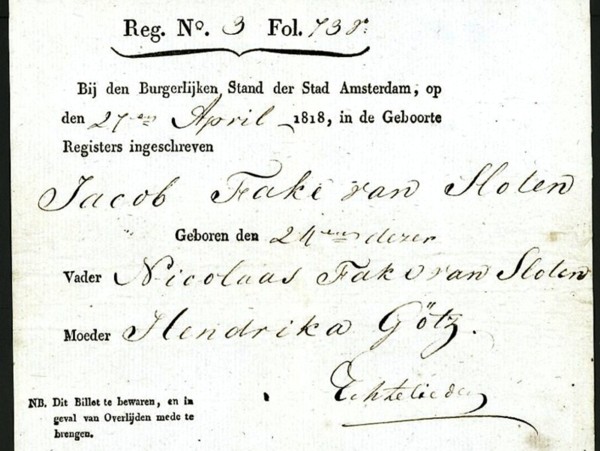 Reg. No. 3 Fol. 738r.
Bij den Burgerlijken Stand der Stad Amsterdam, op
den 27en April 1818, in de Geboorte
Registers ingeschreven
Jacob Fake van Sloten
Geboren den 24en dezer
Vader Nicolaas Fake van Sloten
Moeder Hendrika Götz.
Echtelieden
NB. Dit Billet te bewaren, en in
geval van Overlijden mede te
brengen.